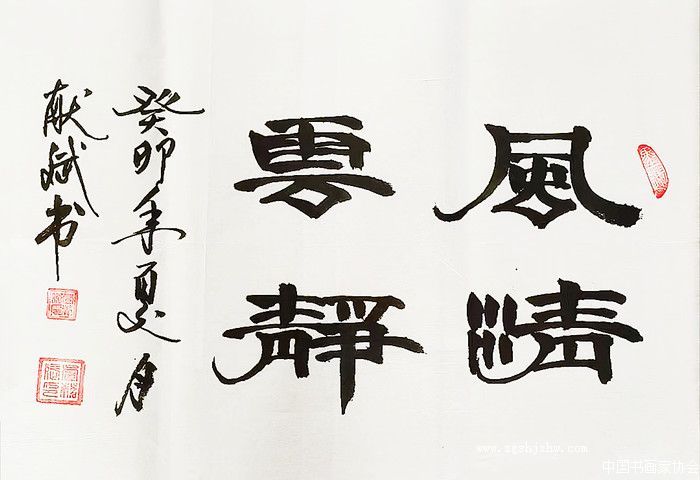 風清
雲靜
癸卯年夏月
献斌书
www.zgshjzhw.com
中国书画家协会